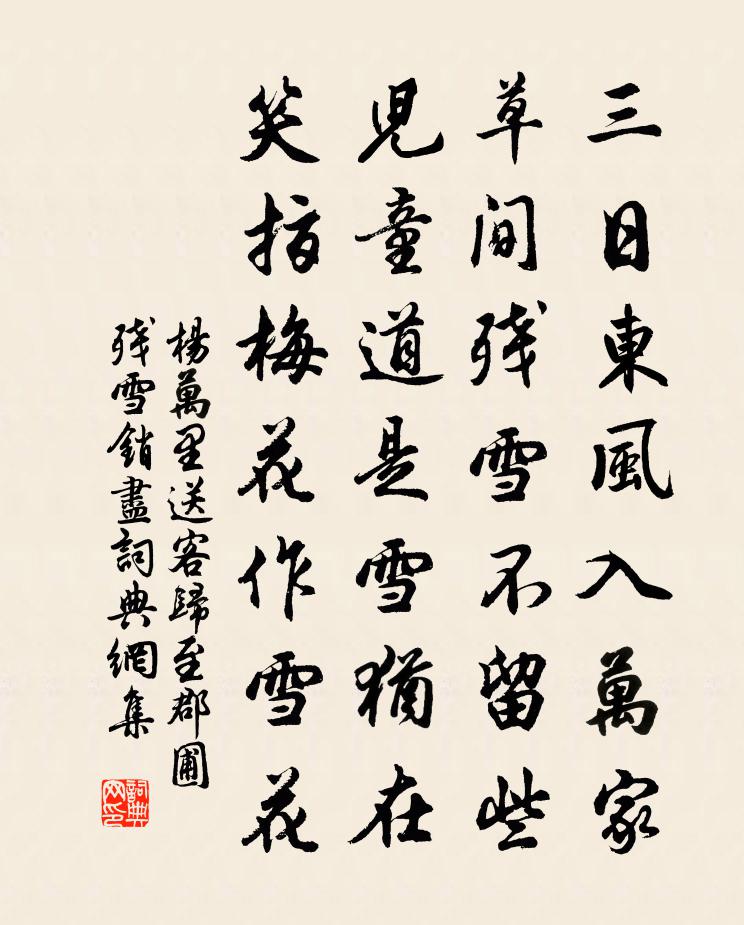 三日東風入萬家
草間残雪不留些
児童道是雪猶在
笑指梅花作雪花
楊萬里送客歸至郡圃
残雪銷盡詞典網集
詞典
网印